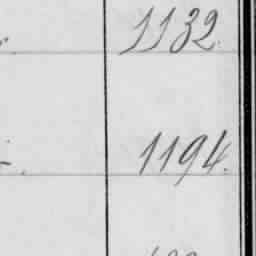 1132.
1194.